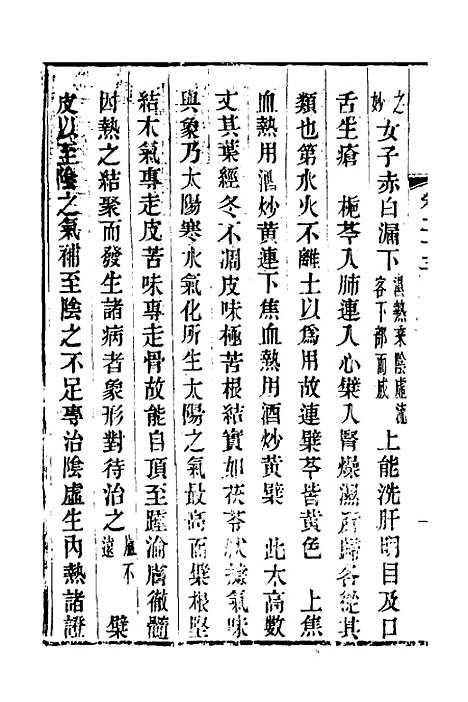 之妙女子赤白漏下濕熱乘陰虛流客下部而成上能洗肝明目及口
舌生瘡梔芩入肺連入心櫱入腎燥濕所歸各從其
類也第水火不離土以為用故連櫱芩皆黃色上焦
血熱用酒炒黃連下焦血熱用酒炒黃櫱此木高數
丈其葉經冬不凋皮味極苦根結實如茯苓狀據氣味
與象乃太陽寒水氣化所生太陽之氣最高而櫱根堅
結木氣專走皮苦味專走骨故能自頂至踵淪膚徹髓
因熱之結聚而發生諸病者象形對待治之盧不遠櫱
皮以至陰之氣補至陰之不足專治陰虛生內熱諸證